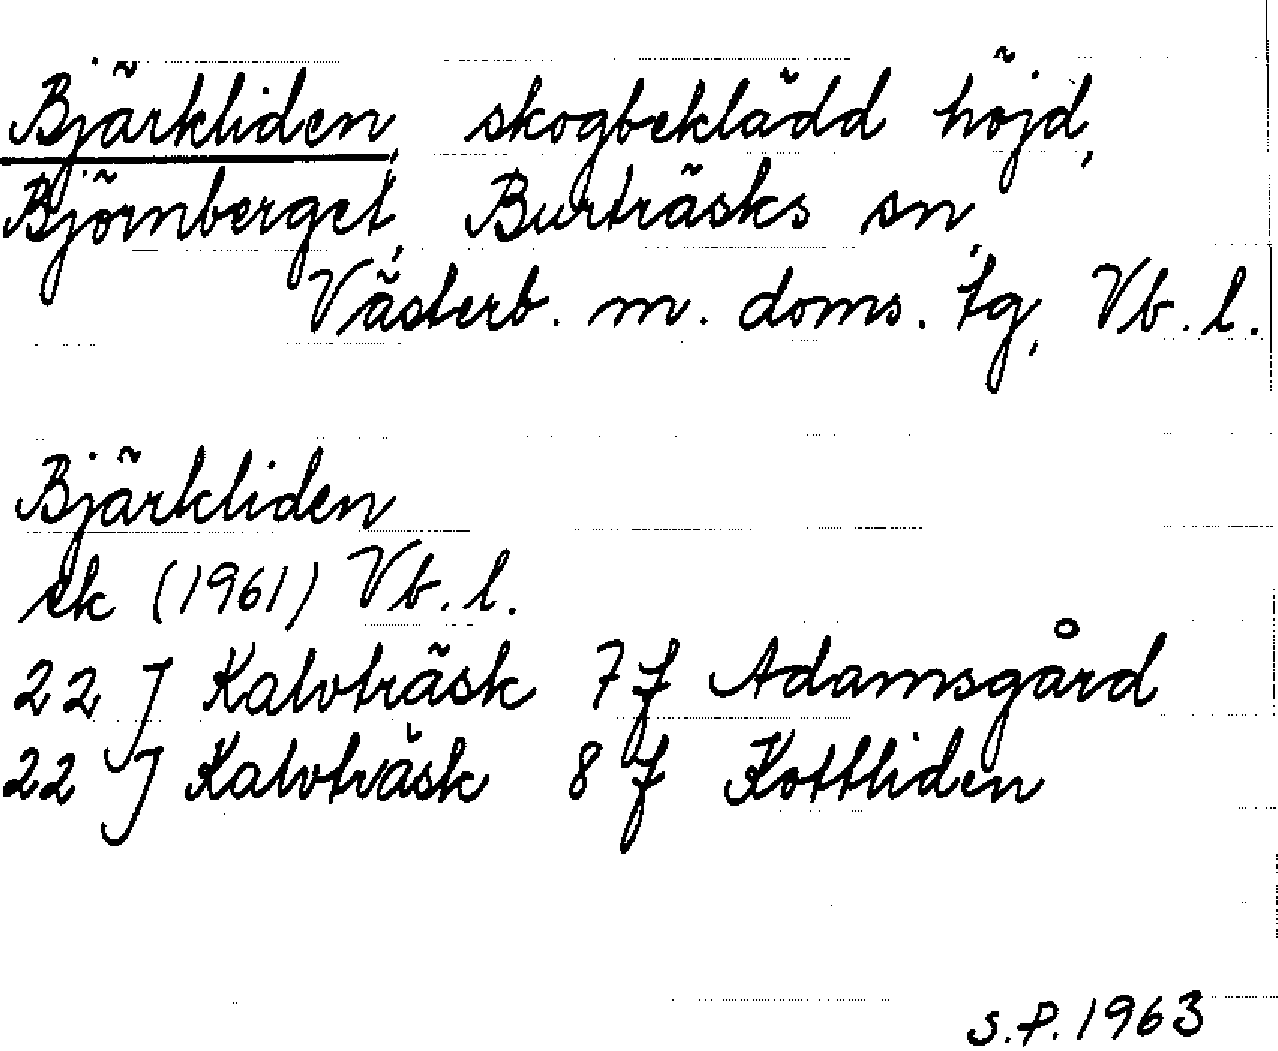 Bjärkliden, skogbeklädd höjd,
Björnberget, Burträsks sn,
Västerb. m. doms. tg, Vb. l.
Bjärkliden
ek (1961) Vb. l.
22 J Kalvträsk 7f Adamsgård
22 J Kalvträsk 8f Kottliden
S.P. 1963